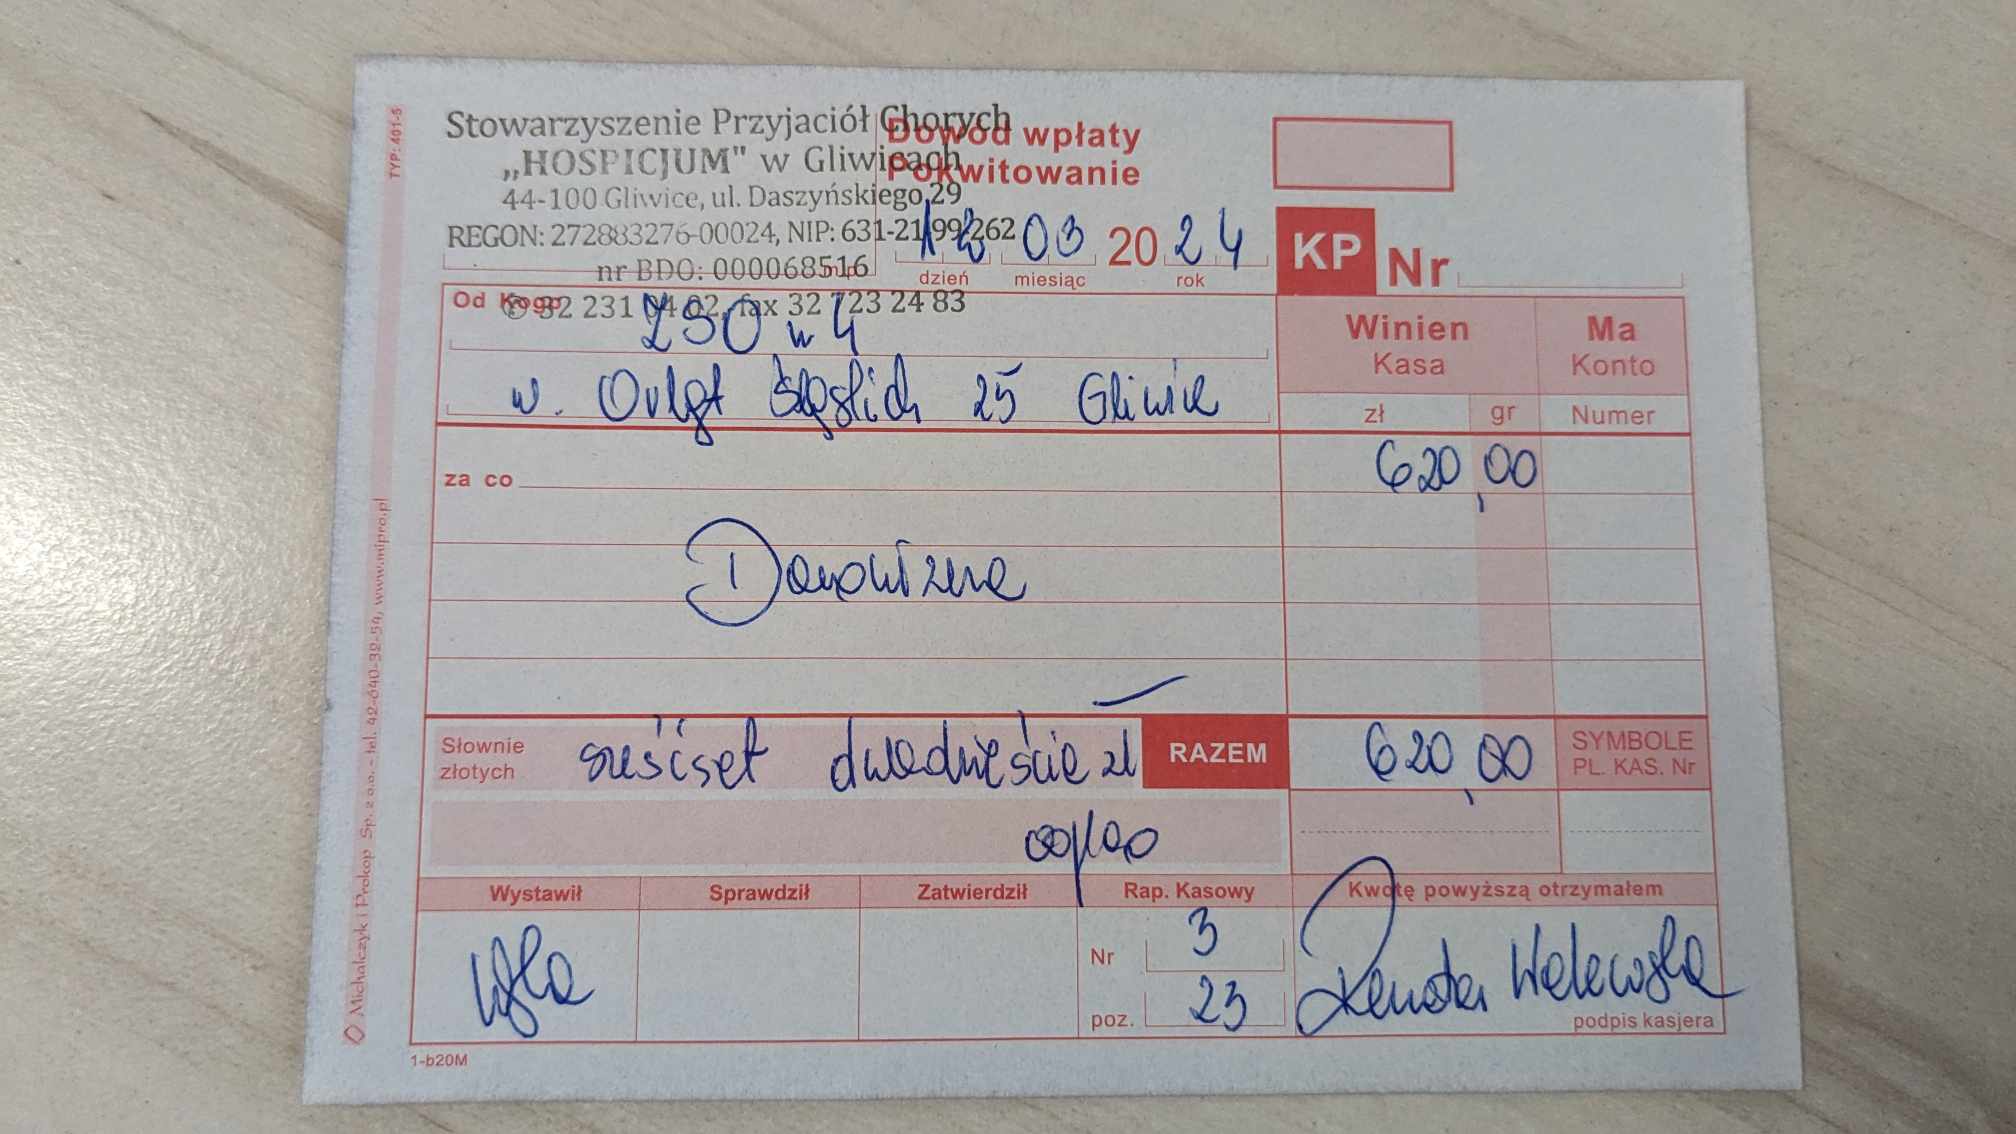 TYP: 401-5
Stowarzyszenie Przyjaciół Chorych
„HOSPICJUM" w Gliwicach
44-100 Gliwice, ul. Daszyńskiego 29
REGON: 272883276-00024, NIP: 631-21-99-262
nr BDO: 000068516
✆ 32 231 04 02, fax 32 723 24 83
Dowód wpłaty
Pokwitowanie
03 2024
dzień miesiąc rok
KP Nr
Od Kogo
ZSO nr 4
Orląt Śląskich 25 Gliwice
Winien Ma
Kasa Konto
zł gr Numer
za co
620,00
Darowizna
Słownie
złotych
sześćset dwadzieścia zł
RAZEM
620,00
SYMBOLE
PL. KAS. Nr
00/100
Wystawił Sprawdził Zatwierdził Rap. Kasowy Kwotę powyższą otrzymałem
Nr 3
poz. 23
Renata Walewska
podpis kasjera
1-b20M
Michalczyk i Prokop Sp. z o.o. - tel. 42-640-32-54, www.mipro.pl